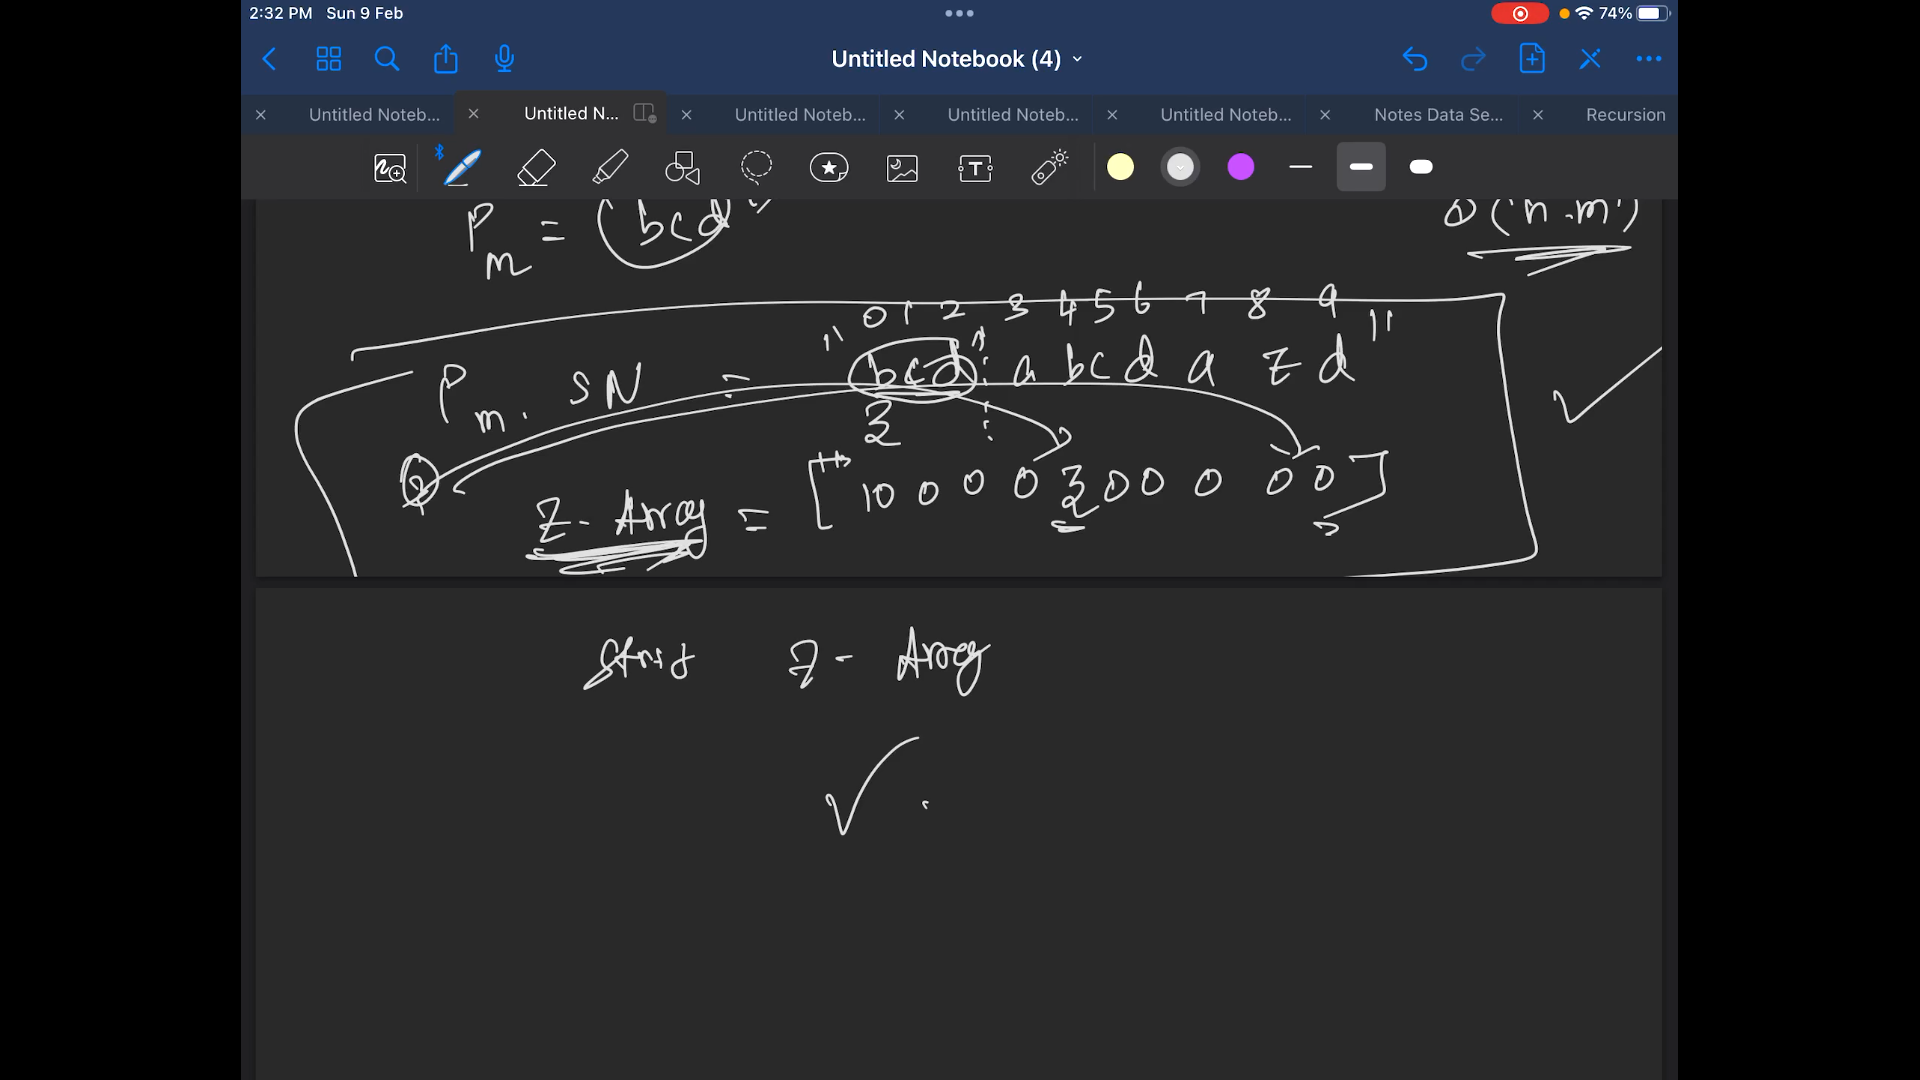 2:32 PM Sun 9 Feb
74%
Untitled Notebook (4)
Untitled Noteb...
Untitled N...
Untitled Noteb...
Untitled Noteb...
Untitled Noteb...
Notes Data Se...
Recursion
T
Pm = (bcd"
O(n.m)
0 1 2 3 4 5 6 7 8 9
Pm. SN = "bcd a bcd a z d"
3
Z-Array = [10 0 0 0 3 0 0 0 0 0]
Z- Array